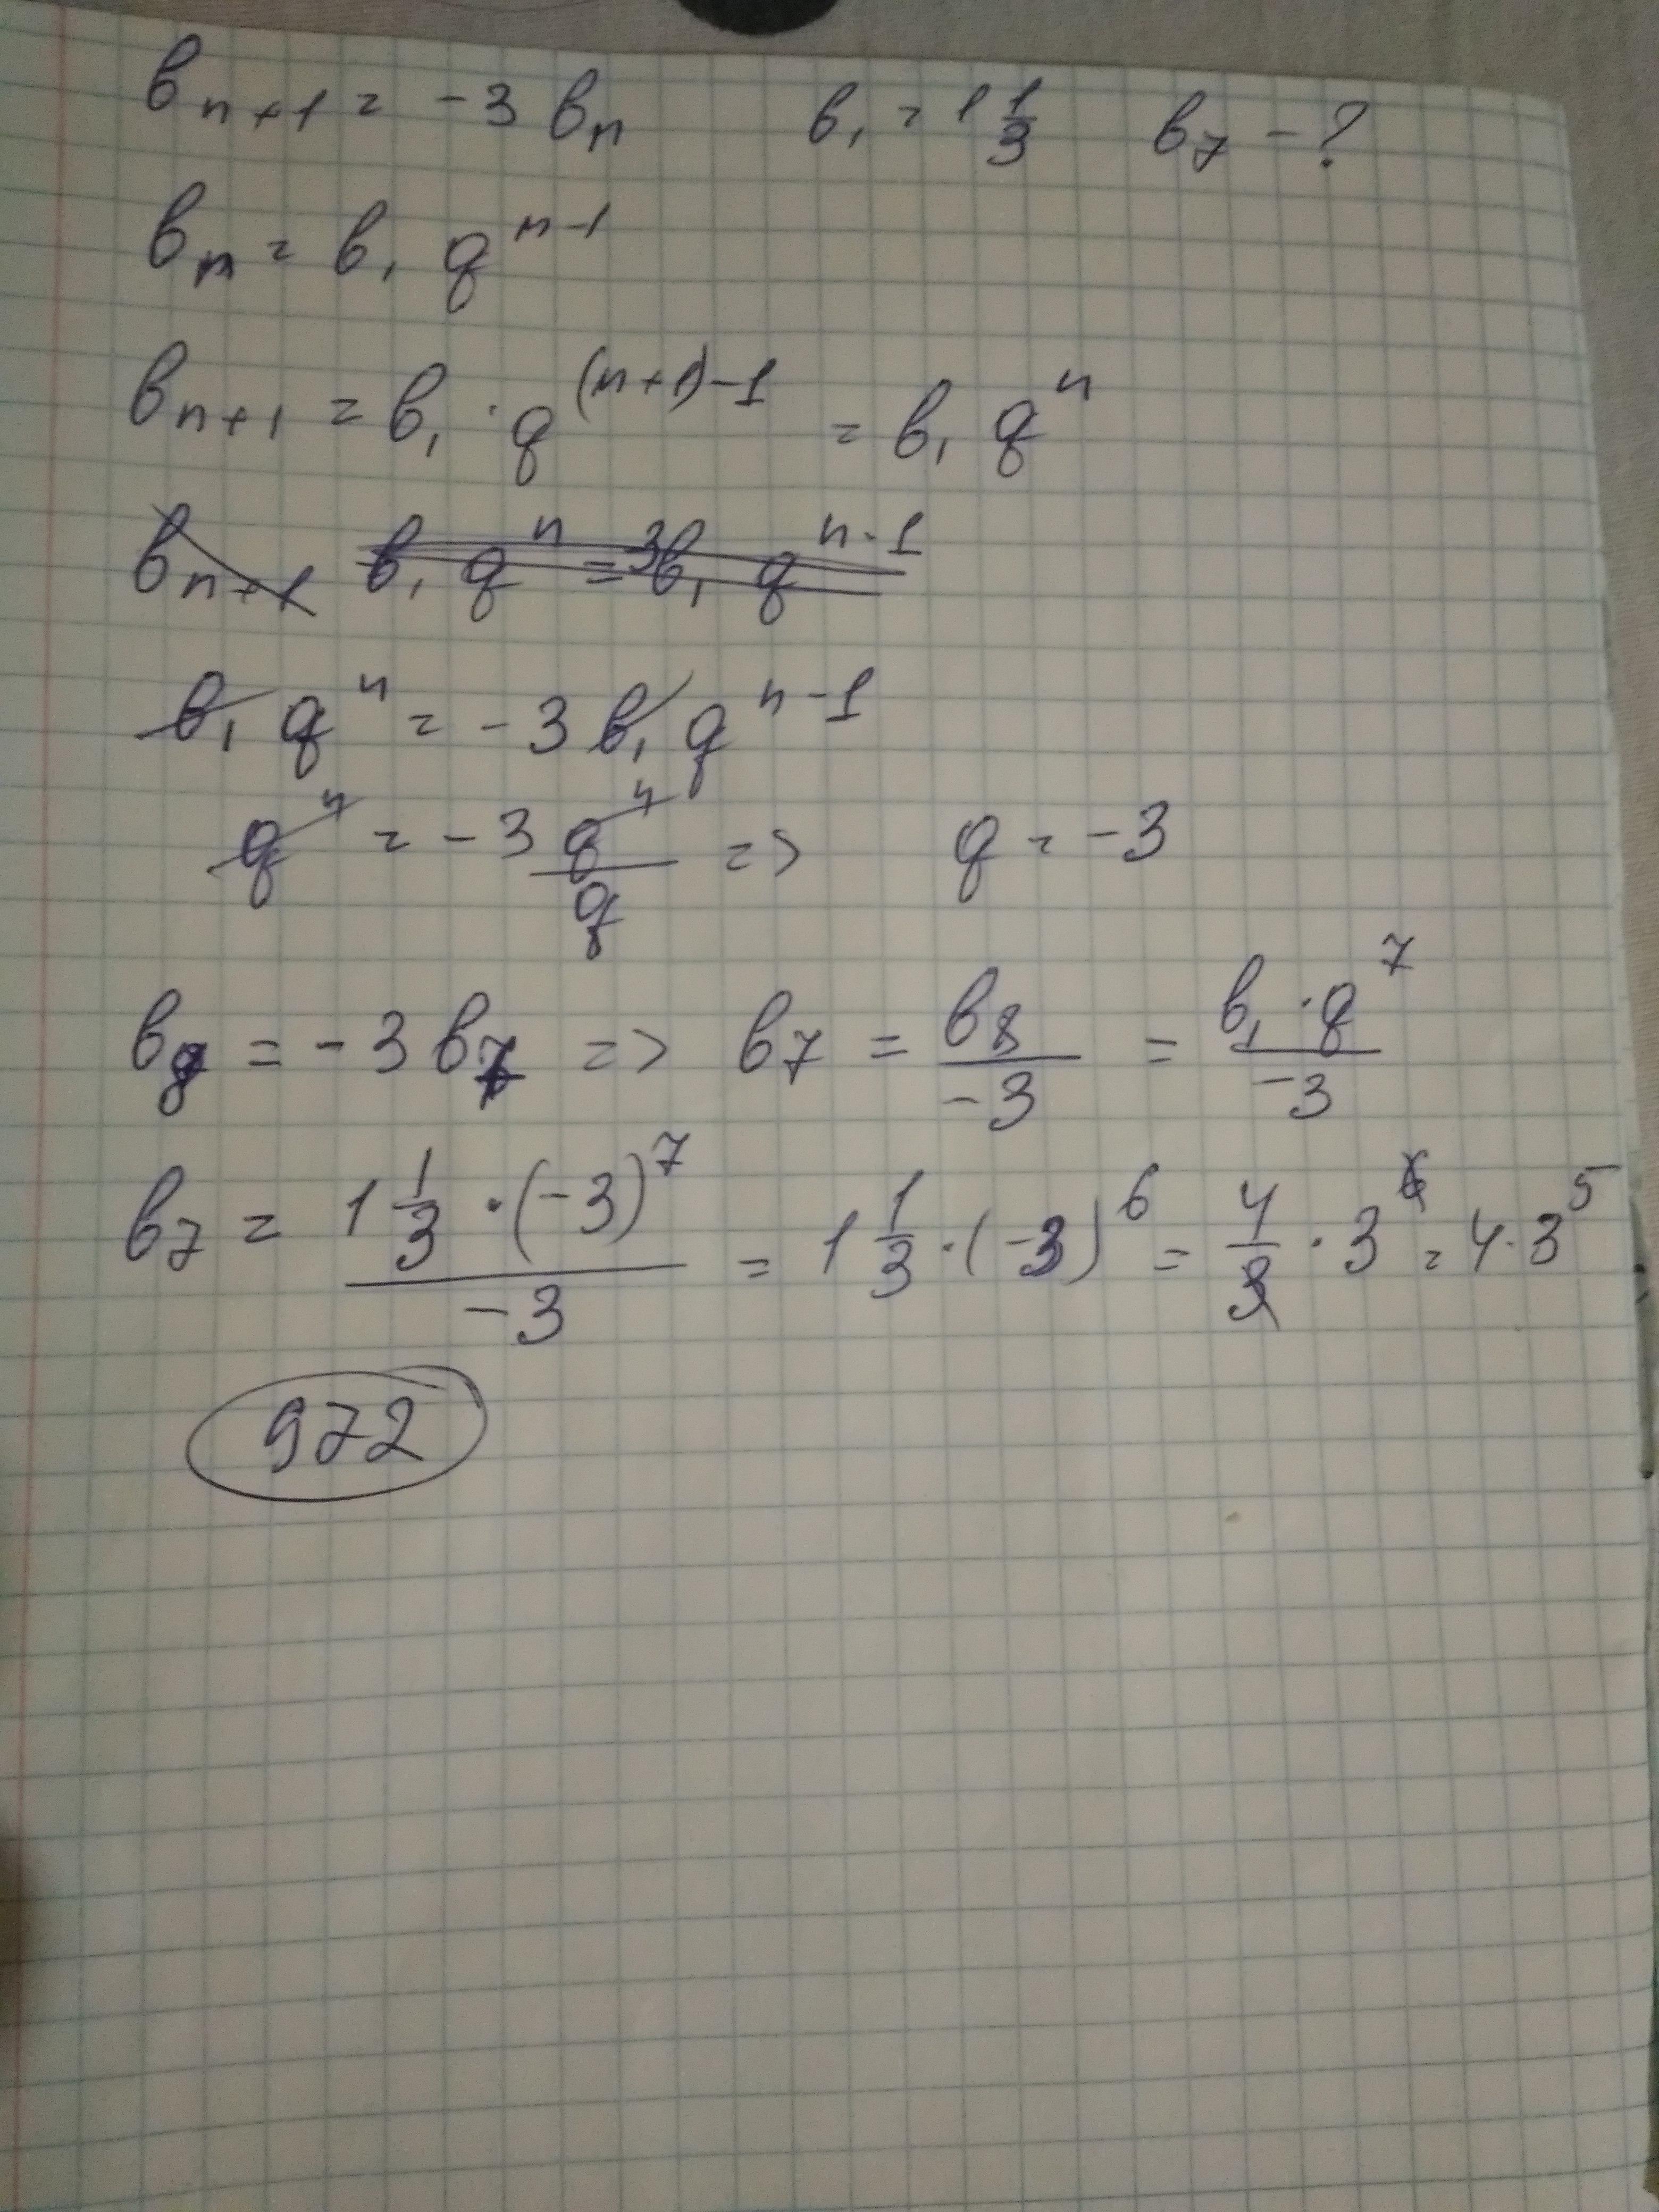 в_{n+1} = -3 в_n   в_1 = 1 1/3   в_7 - ?
в_n = в_1 q^{n-1}
в_{n+1} = в_1 · q^{(n+1)-1} = в_1 q^n
в_{n+1} в_1 q^n = 3в_1 q^{n-1}
в_1 q^n = -3 в_1 q^{n-1}
q^n = -3 q^n/q => q = -3
в_8 = -3 в_7 => в_7 = в_8/-3 = в_1 · q^7/-3
в_7 = 1 1/3 · (-3)^7/-3 = 1 1/3 · (-3)^6 = 4/3 · 3^6 = 4 · 3^5
972